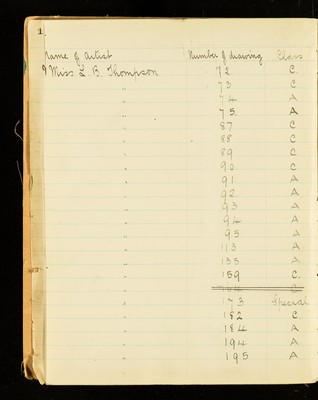 1
Name of Artist Number of drawing Class
Miss L. B. Thompson 72 C.
" 73 C
" 74 A
" 75. A
" 87 C
" 88 C
" 89 C
" 90 C
" 91 A
" 92 A
" 93 A
" 94 A
" 95 A
" 113 A
" 135 A
" 159 C.
" 173 Special
" 182 C.
" 184 A
" 194 A
" 195 A